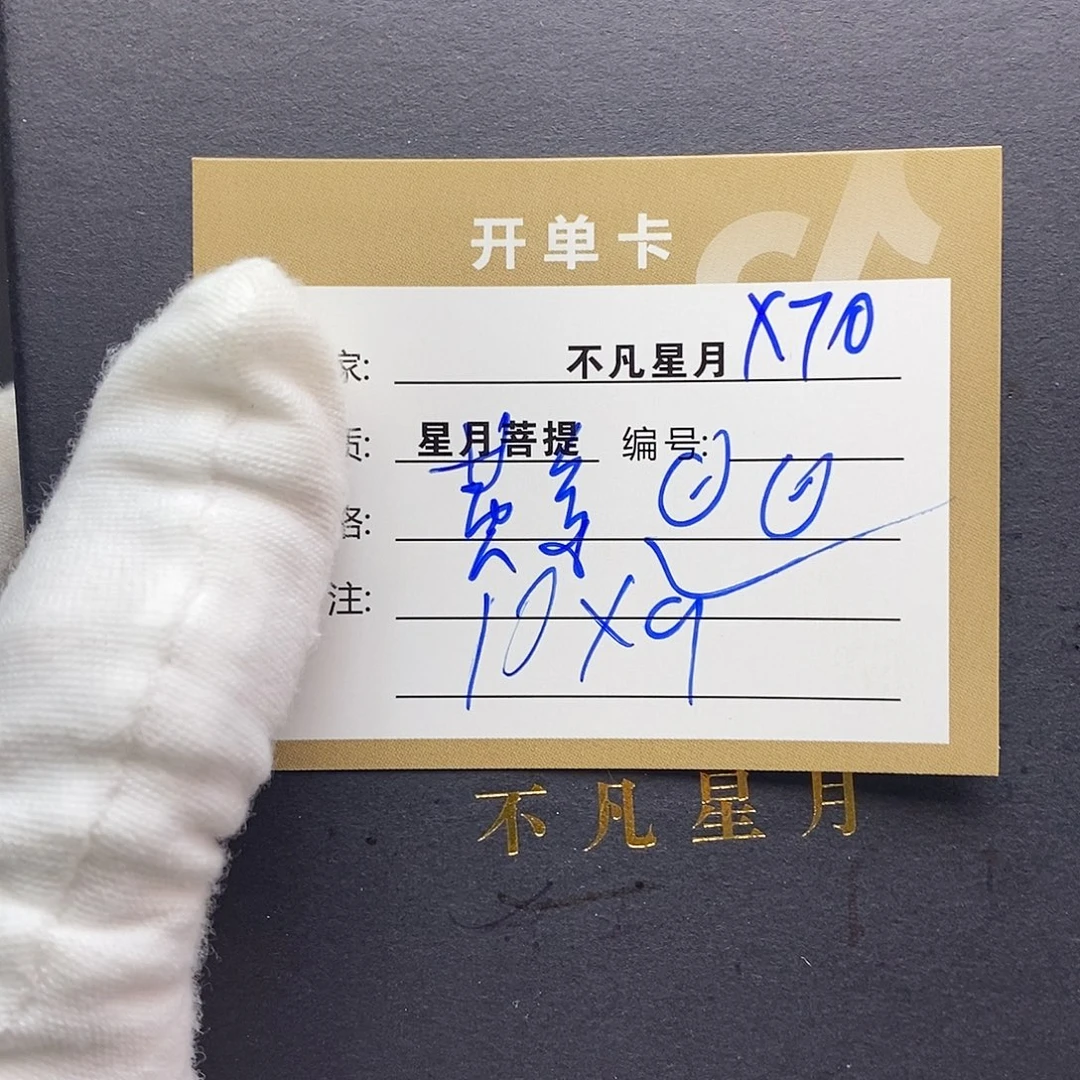 开单卡
家: 不凡星月 X70
质: 星月菩提 编号:
格:
注:
10X9
不凡星月